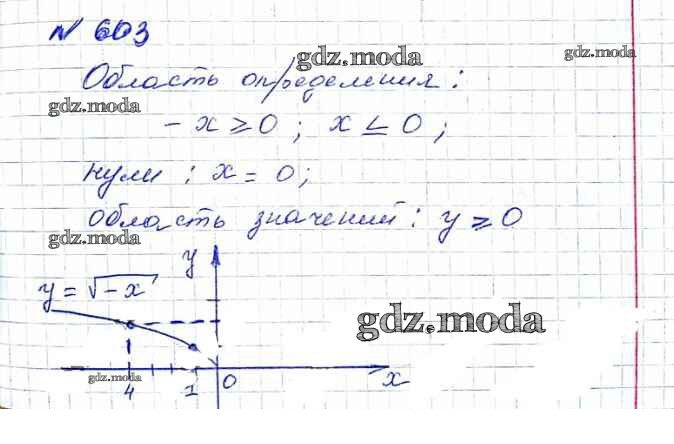 № 603
gdz.moda
gdz.moda
Область определения:
gdz.moda
- x ≥ 0; x ≤ 0;
нули: x = 0;
область значений: y ≥ 0
gdz.moda
y
y = √-x
gdz.moda
gdz.moda
4 1 0 x